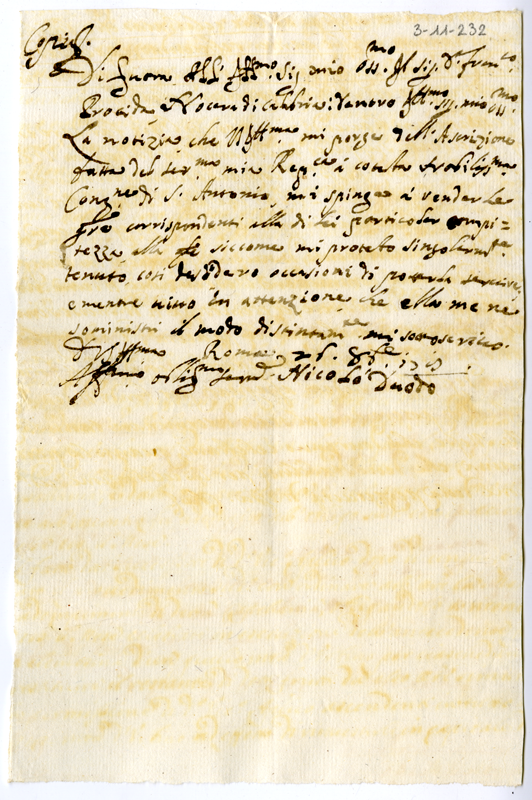 3-11-232
Copia.
Di fuora All' Ill.mo Sig. mio oss.mo Il Sig. D. Fran.co
Procida Nocara di Calabria: Dentro Ill.mo Sig. mio oss.mo
La notizia che V.S. Ill.ma mi porge dell'Ascrizione
fatta del Ser.ma mia Rep.ca à cotesta Nobiliss.ma
Cong.ne di S. Antonio, mi spinge à renderle
gře corrispondenti alla di lei particolar compi=
tezza, alla qle siccome mi protesto singolarm.te
tenuto, così desidero occasioni di poterla servire,
e mentre vivo in attenzione che ella me ne
somministri il modo distintam.te mi sottoscrivo.
D V.S. Ill.ma Roma 26. 8bre
Aff.mo oblig.mo Serv.re Nicolò Duodo